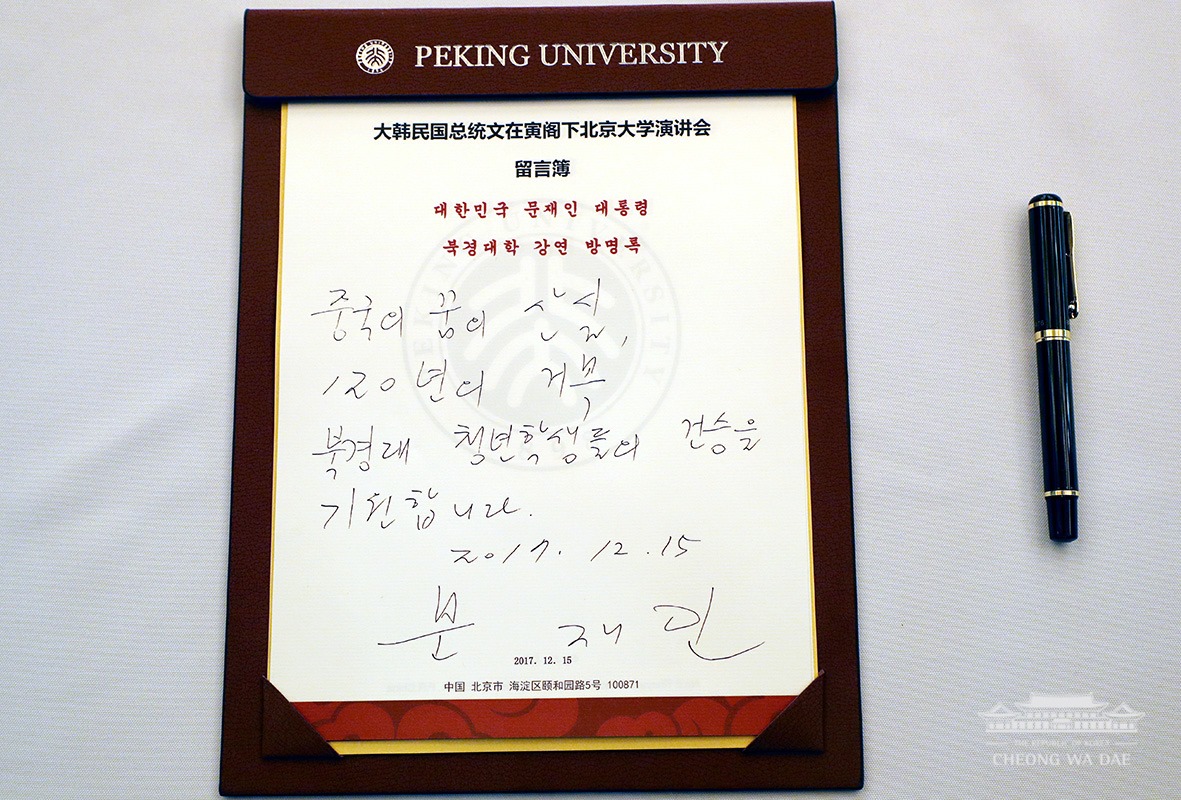 PEKING UNIVERSITY
大韩民国总统文在寅阁下北京大学演讲会
留言簿
대한민국 문재인 대통령
북경대학 강연 방명록
PEKING UNIVERSITY
중국의 꿈의 산실,
120년의
북경대 청년학생들의 건승을
기원합니다.
2017. 12. 15
문 재 인
2017. 12. 15
中国 北京市 海淀区颐和园路5号 100871
THE REPUBLIC OF KOREA
CHEONG WA DAE